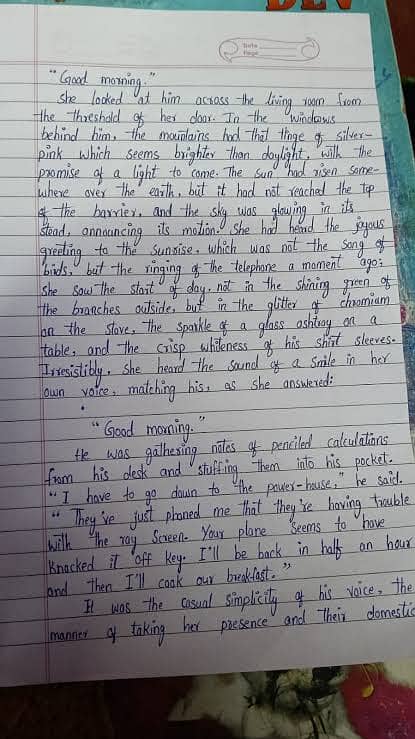 DEV
Date
Page
"Good morning."
She looked at him across the living room from
the threshold of her door. In the windows
behind him, the mountains had that tinge of silver-
pink which seems brighter than daylight, with the
promise of a light to come. The sun had risen some-
where over the earth, but it had not reached the top
of the barrier, and the sky was glowing in its
stead, announcing its motion. She had heard the joyous
greeting to the sunrise, which was not the song of
birds, but the ringing of the telephone a moment ago;
she saw the start of day, not in the shining green of
the branches outside, but in the glitter of chromium
on the stove, the sparkle of a glass ashtray on a
table, and the crisp whiteness of his shirt sleeves.
Irresistibly, she heard the sound of a smile in her
own voice, matching his, as she answered:
"Good morning."
He was gathering notes of penciled calculations
from his desk and stuffing them into his pocket.
"I have to go down to the power-house," he said.
"They've just phoned me that they're having trouble
with the ray screen. Your plane seems to have
knocked it off key. I'll be back in half an hour
and then I'll cook our breakfast."
It was the casual simplicity of his voice, the
manner of taking her presence and their domestic